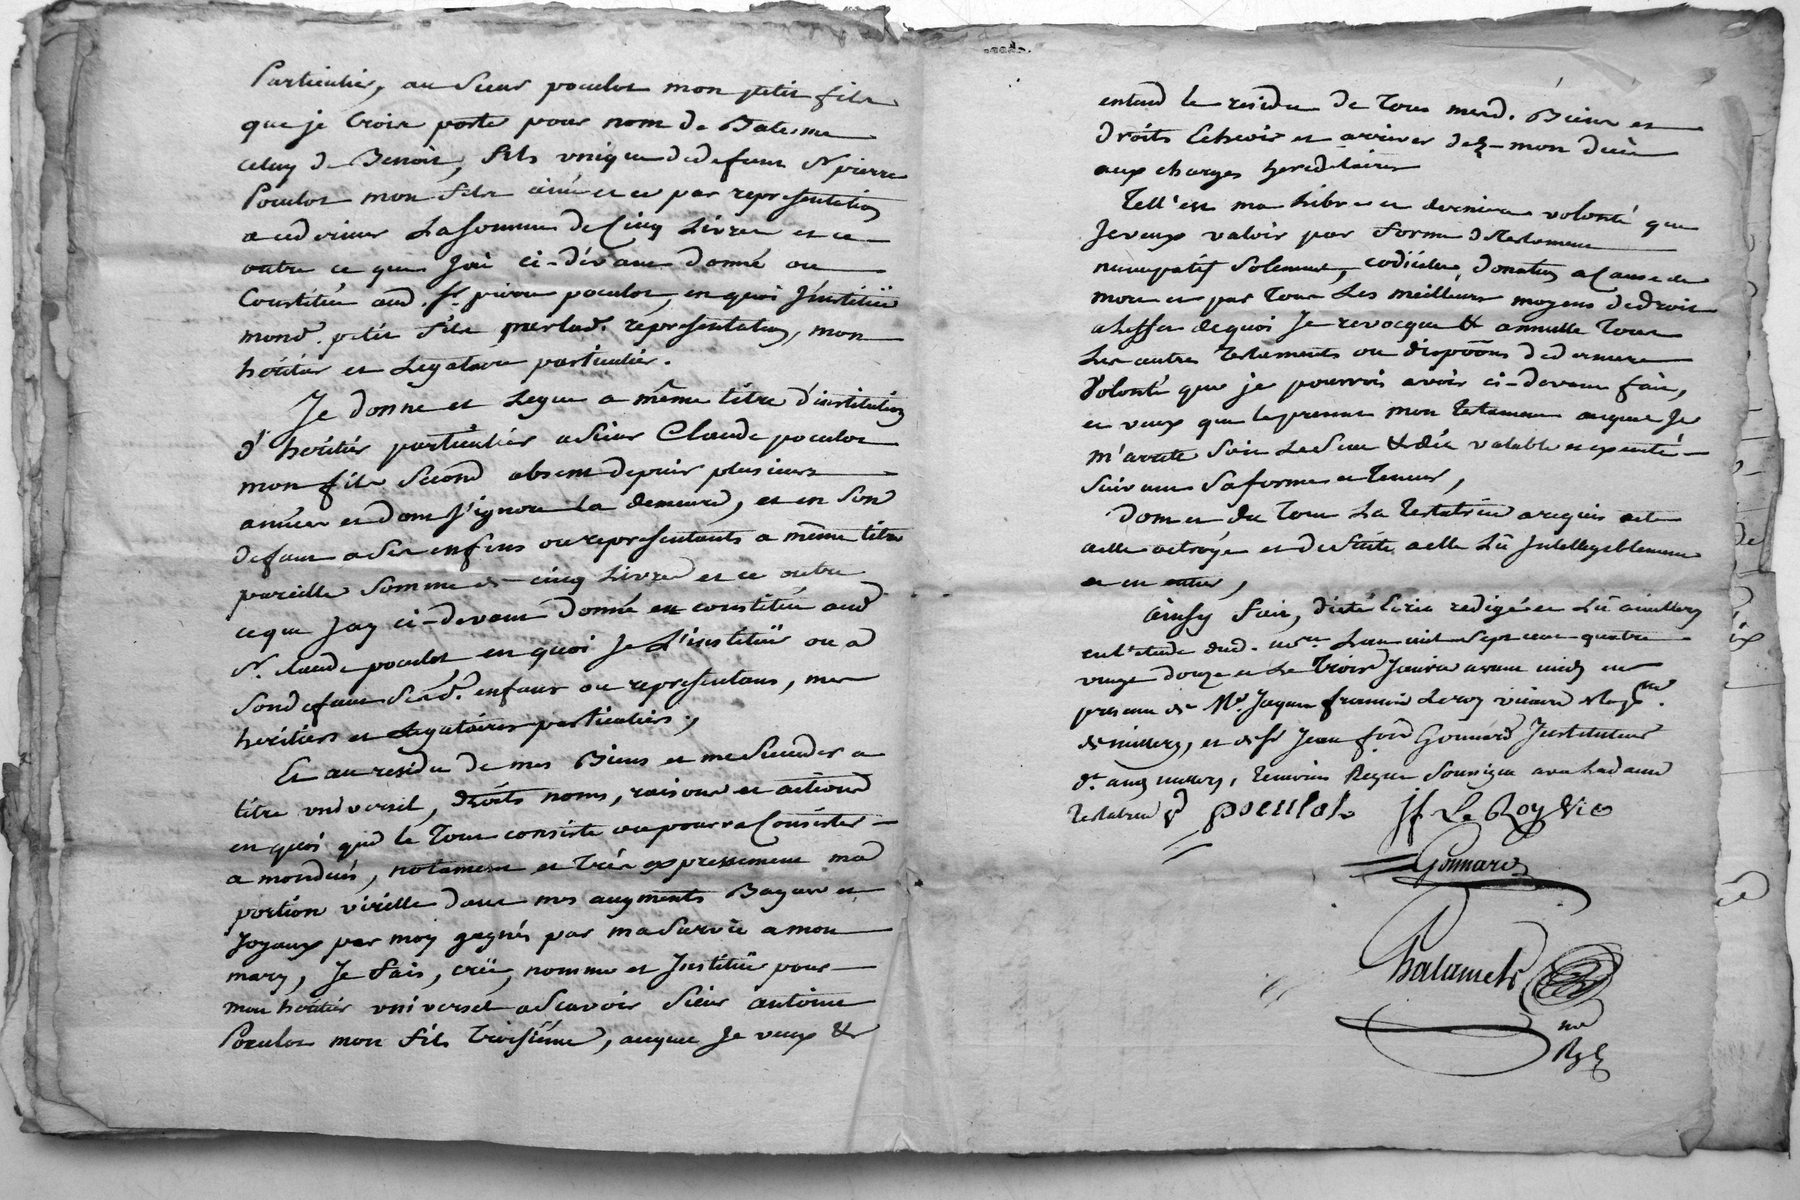 Particulier, au sieur poculot mon petit fils
que je Crois porter pour nom de Bateme
celuy de Benoit, fils unique dedefunt Sr pierre
Poculot mon fils ainé et ce par representation
aud dernier La somme de Cinq Livres et ce
outre ce que J'ai ci-dévant donné ou
Constitué aud. Sr. pierre poculot, en quoi J'institüe
mond. petit fils par lad. représentation, mon
héritier et Legataire particulier.
Je donne et Legue a même titre d'institution
d'héritier particulier a Sieur Claude poculot
mon fils Second absent depuis plusieurs
années et dont J'ignore la demeure, et en Son
defaut a Ses enfens ou representants a même titre
pareille Somme de cinq Livres et ce outre
ceque Jay ci-devant donné ou constitué aud
Sr. claude poculot, en quoi Je L'institüe ou a
Son defaut Sesd. enfans ou representans, mes
heritiers et Legataires particuliers,
Et au residu de mes Biens et me Succeder a
titre universel, droits noms, raisons et actions
en quoi que le Tout consiste ou pourra Consister
a mondeces, notament et Très expressement ma
portion virille dans mes augments Bagues et
Joyaux par moy gagnés par ma Survie a mon
mary, Je fais, crée, nomme et Institüe pour
mon héritier universel a Scavoir Sieur antoine
Poculot mon fils Troisième, auquel Je veux &
entend le residu de Tous mesd. Biens et
droits Echeoir et arriver dez mon deces
aux charges hereditaires
Tell'est ma Libre et derniere volonté que
Je veux valoir par forme de Testament
nuncupatif Solennel, codicile, donation a Cause de
mort et par Tous Les meilleurs moyens de droit
a L'effet dequoi Je revocque & annulle Tous
Les autres Testaments ou dispoõns de derniere
Volonté que je pourrois avoir ci-devant fait,
et veux que le present mon Testament auquel Je
m'arrete Soit Le Seul & dit valable et executé
Suivant Sa forme et Teneur,
Dont et du Tout La Testatrice a requis acte
a elle octroyé et de Suite a elle Lû Intelligiblement
et en entier,
Ainsy fait, dicté Ecrit redigé et Lû a millery
en l'etude dud. nore. L'an mil Sept cent quatre
vingt douze et Le Trois Janvier avant midy en
presence de Me. Jaques francois Leroy vicaire
de millery, et de Sr Jean fois Gonnard Instituteur
dt. aud millery, Temoins Requis Soussignés avec Lad dame
Testatrice
poculot JF Le Roy Vic
Gonnard
Chalamel
nre
Ryl